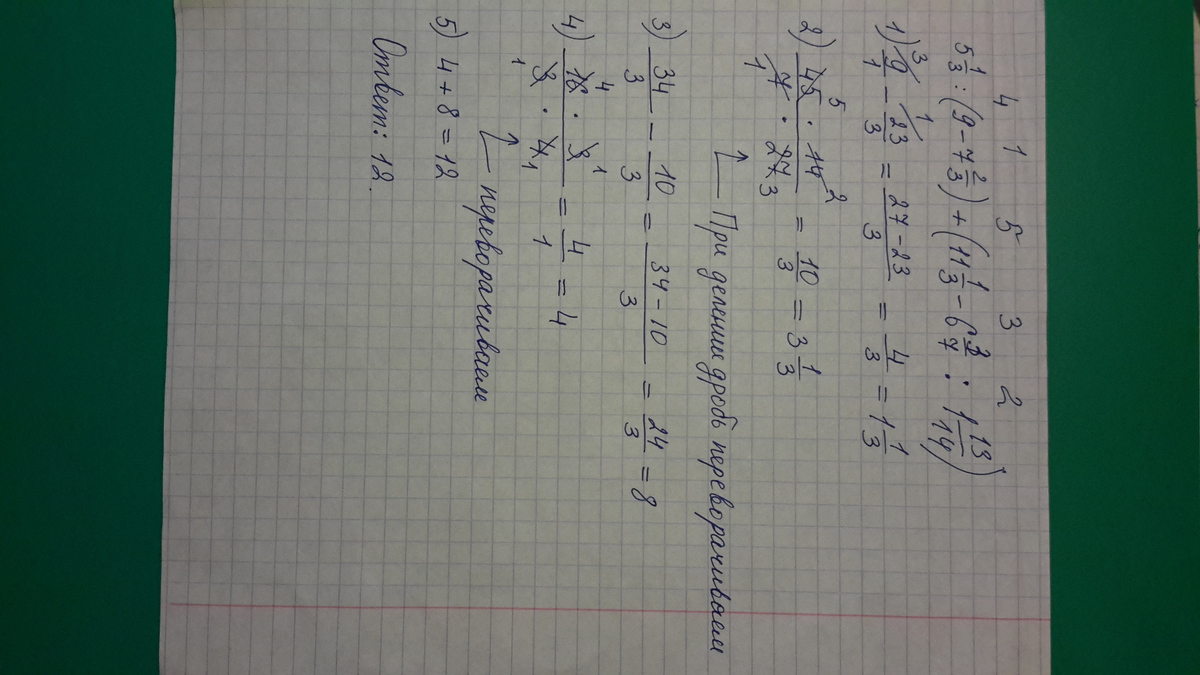 4 1 5 3 2
5 1/3 : (9 - 7 2/3) + (11 1/3 - 6 3/7 : 1 13/14)
1) 9/1 (3) - 23/3 (1) = 27-23/3 = 4/3 = 1 1/3
2) 45 (5) · 14 (2) / 7 (1) · 27 (3) = 10/3 = 3 1/3
При делении дробь переворачиваем
3) 34/3 - 10/3 = 34-10/3 = 24/3 = 8
4) 16 (4) · 3 (1) / 3 (1) · 4 (1) = 4/1 = 4
переворачиваем
5) 4 + 8 = 12
Ответ: 12.